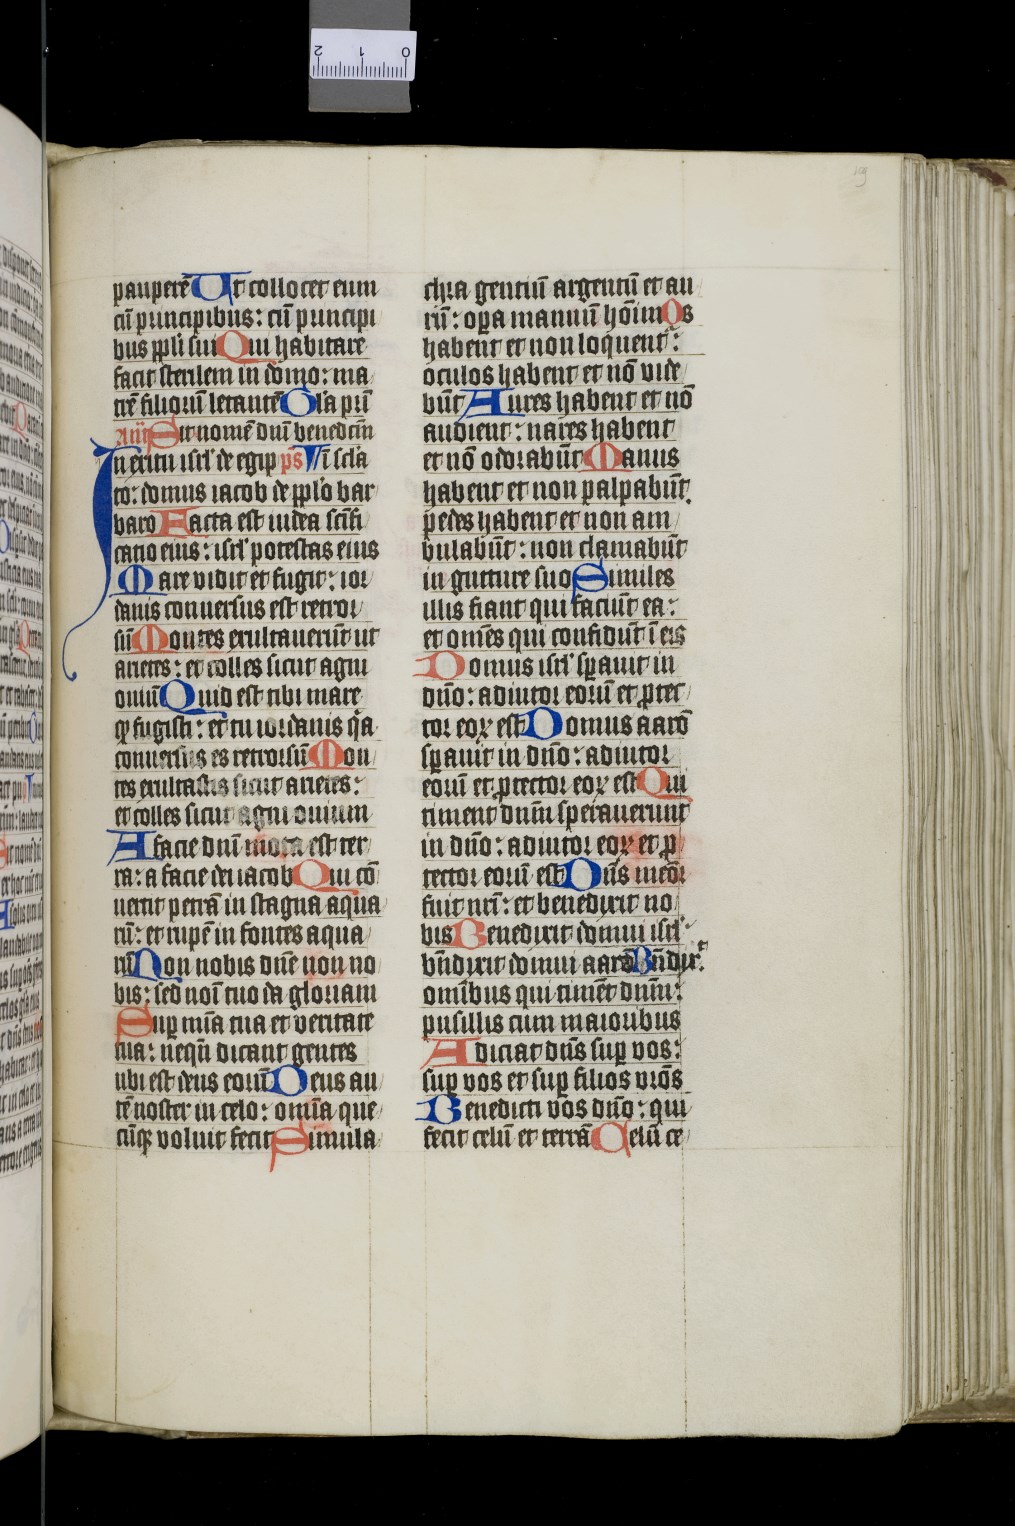 19
pauperē Ut collocet eum
cū principibus: cū principi
bus ppli sui Qui habitare
facit sterilem in domo: ma
trē filiorū letantē Gla pr̄i
Sit nomē dnī benedictū
In exitu isrl' de egip ps Uī iscla
to: domus iacob de pplo bar
baro Facta est iudea scīfi
catio eius: isrl' potestas eius
Mare vidit et fugit: ior
danis conuersus est retror
sū Montes exultauerūt ut
arietes: et colles sicut agni
ouiū Quid est tibi mare
qꝫ fugisti: et tu iordanis qa
conuersus es retrorsū Mon
tes exultastis sicut arietes:
et colles sicut agni ouium
A facie dnī mota est ter
ra: a facie dei iacob Qui cō
uertit petrā in stagna aqua
rū: et rupē in fontes aqua
rū Non nobis dn̄e non no
bis: sed noī tuo da gloriam
Sup mīa tua et veritate
tua: neqn̄ dicant gentes
ubi est deus eorū Deus au
tē noster in celo: omīa que
cūqꝫ voluit fecit Simula
chra gentiū argentū et au
rū: opa manuū hōim Os
habent et non loquent':
oculos habent et nō vide
būt Aures habent et nō
audient: nares habent
et nō odorabūt Manus
habent et non palpabūt
pedes habent et non am
bulabūt: non clamabūt
in gutture suo Similes
illis fiant qui faciūt ea:
et omēs qui confidūt ī eis
Domus isrl' spauit in
dn̄o: adiutor eorū et ptec
tor eoꝝ est Domus aarō
spauit in dn̄o: adiutor
eorū et ptector eoꝝ est Qui
timent dnūm sperauerunt
in dn̄o: adiutor eoꝝ et p
tector eorū est Dn̄s meōr
fuit nrī: et benedixit no
bis Benedixit domui isrl':
bn̄dixit domui aarō Bn̄dix
omībus qui timēt dnūm:
pusillis cum maioribus
Adiciat dn̄s sup vos:
sup vos et sup filios vr̄os
Benedicti vos dn̄o: qui
fecit celū et terrā Celū ce
2 1 0